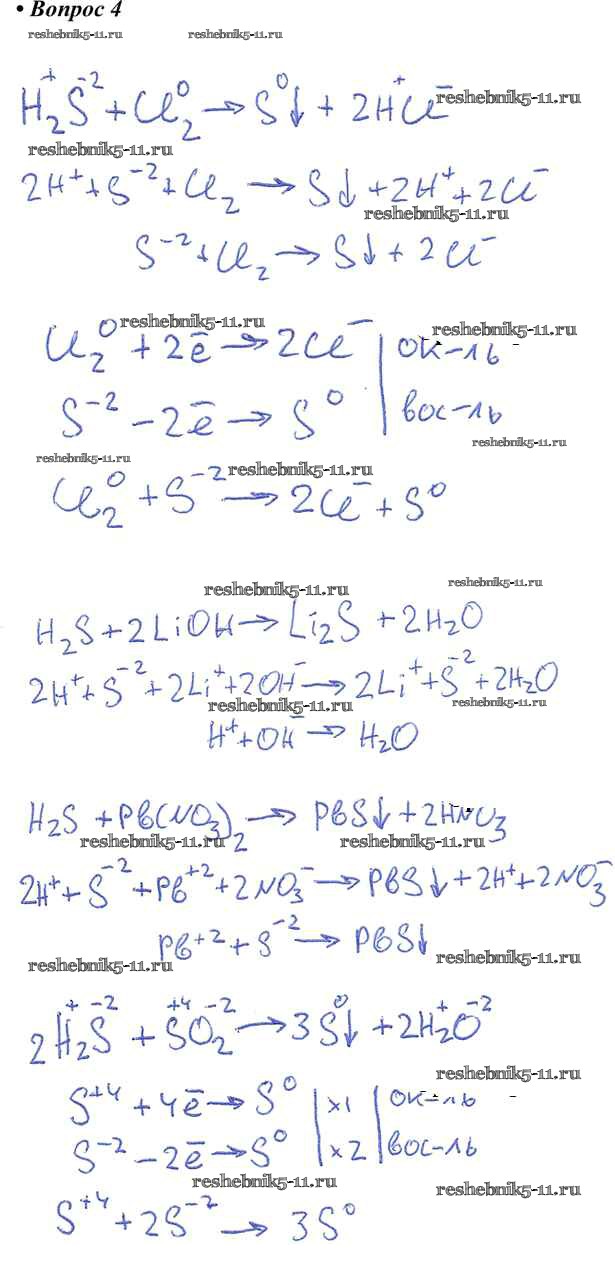 • Вопрос 4
reshebnik5-11.ru reshebnik5-11.ru
H₂⁺S⁻² + Cl₂⁰ → S⁰↓ + 2H⁺Cl⁻ reshebnik5-11.ru
reshebnik5-11.ru
2H⁺ + S⁻² + Cl₂ → S↓ + 2H⁺ + 2Cl⁻
reshebnik5-11.ru
S⁻² + Cl₂ → S↓ + 2Cl⁻
reshebnik5-11.ru reshebnik5-11.ru
Cl₂⁰ + 2ē → 2Cl⁻ | ок-ль
S⁻² - 2ē → S⁰ | вос-ль
reshebnik5-11.ru
reshebnik5-11.ru reshebnik5-11.ru
Cl₂⁰ + S⁻² → 2Cl⁻ + S⁰
reshebnik5-11.ru reshebnik5-11.ru
H₂S + 2LiOH → Li₂S + 2H₂O
2H⁺ + S⁻² + 2Li⁺ + 2OH⁻ → 2Li⁺ + S⁻² + 2H₂O
reshebnik5-11.ru reshebnik5-11.ru
H⁺ + OH⁻ → H₂O
H₂S + Pb(NO₃)₂ → PbS↓ + 2HNO₃
reshebnik5-11.ru reshebnik5-11.ru
2H⁺ + S⁻² + Pb⁺² + 2NO₃⁻ → PbS↓ + 2H⁺ + 2NO₃⁻
Pb⁺² + S⁻² → PbS↓
reshebnik5-11.ru reshebnik5-11.ru
2H₂⁺S⁻² + S⁺⁴O₂⁻² → 3S⁰↓ + 2H₂⁺O⁻²
reshebnik5-11.ru
S⁺⁴ + 4ē → S⁰ | x1 | ок-ль
S⁻² - 2ē → S⁰ | x2 | вос-ль
reshebnik5-11.ru reshebnik5-11.ru
S⁺⁴ + 2S⁻² → 3S⁰